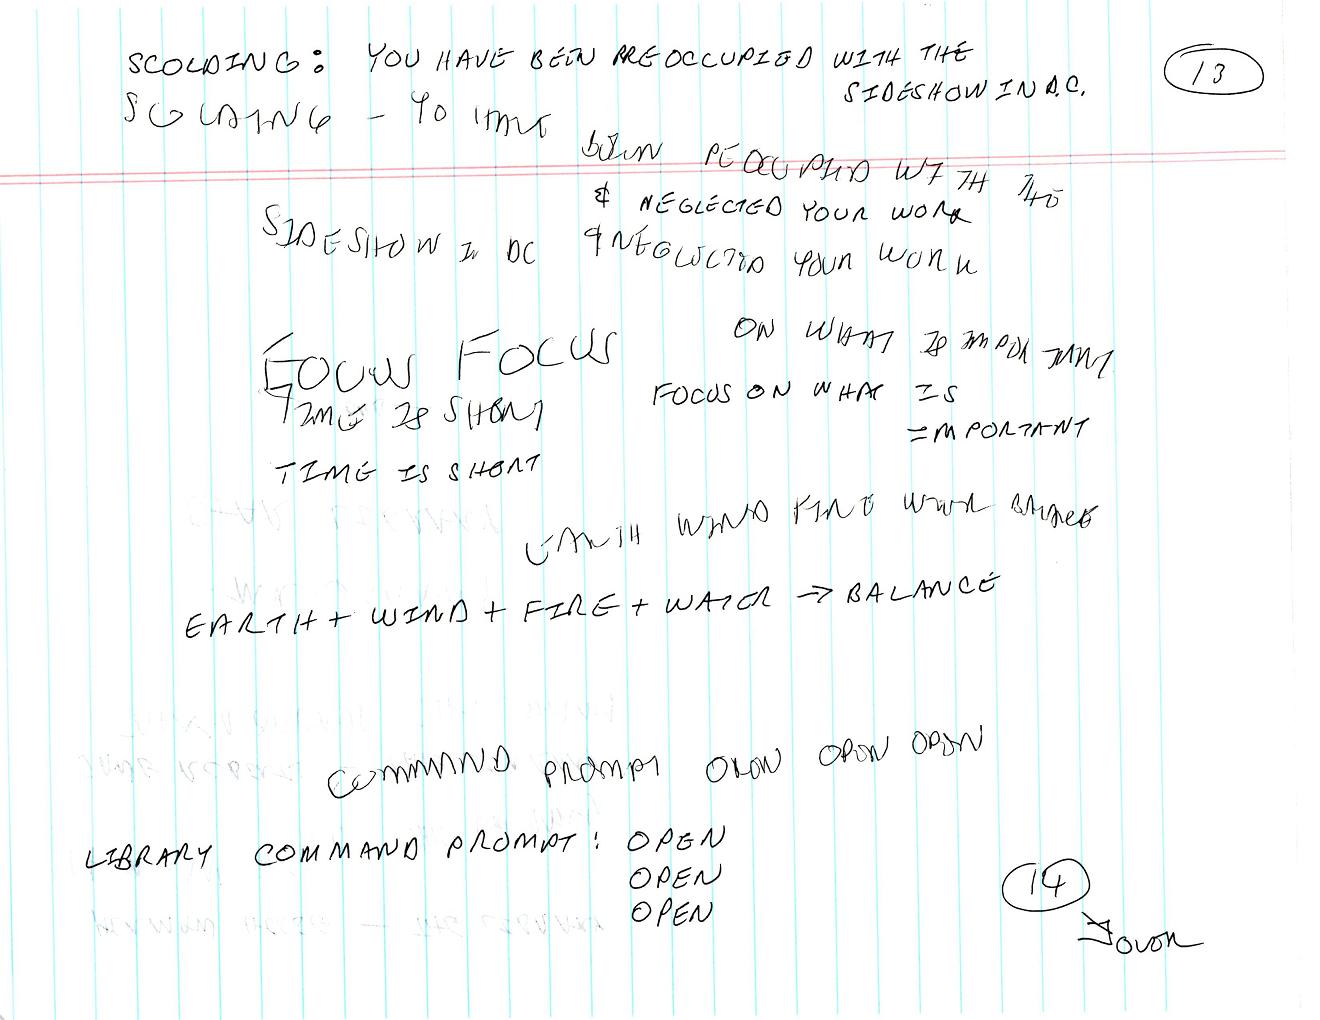 SCOLDING: YOU HAVE BEEN PREOCCUPIED WITH THE
SIDESHOW IN D.C.
13
SCLDING - YO HAVE
BEIN PEOCCUPIED WITH THE
& NEGLECTED YOUR WORK
SIDESHOW IN DC
& NEGLECTED YOUR WORK
FOCUS FOCUS
ON WHAT IS IMPORTANT
TIME IS SHORT
FOCUS ON WHAT IS
IMPORTANT
TIME IS SHORT
EARTH WIND FIRE WATER BALANCE
EARTH + WIND + FIRE + WATER → BALANCE
COMMAND PROMPT OPEN OPEN OPEN
LIBRARY COMMAND PROMPT: OPEN
OPEN
OPEN
14
OVER